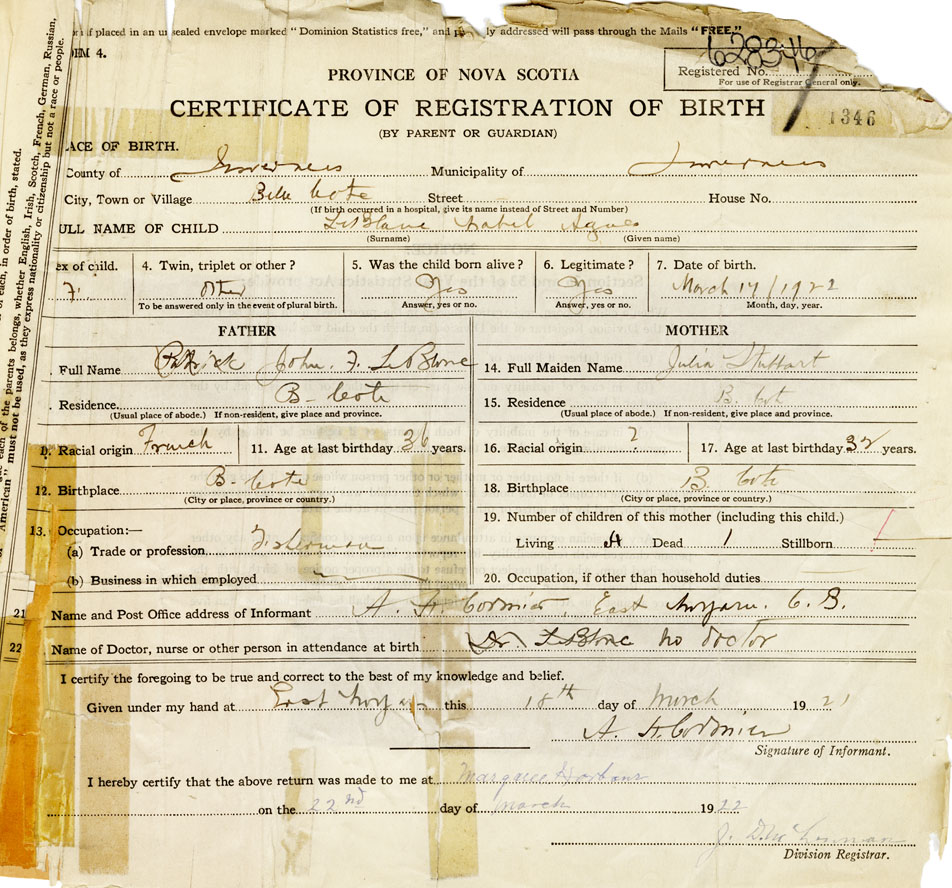 if placed in an unsealed envelope marked "Dominion Statistics free," and addressed will pass through the Mails "FREE."
FORM 4.
62834
Registered No.
For use of Registrar General only.
1346
PROVINCE OF NOVA SCOTIA
CERTIFICATE OF REGISTRATION OF BIRTH
(BY PARENT OR GUARDIAN)
ACE OF BIRTH.
County of Inverness Municipality of Inverness
City, Town or Village Belle Cote Street House No.
(If birth occurred in a hospital, give its name instead of Street and Number)
ULL NAME OF CHILD LeBlanc Isabel Agnes
(Surname) (Given name)
ex of child. 4. Twin, triplet or other? 5. Was the child born alive? 6. Legitimate? 7. Date of birth.
F. other Yes Yes March 17/1922
To be answered only in the event of plural birth. Answer, yes or no. Answer, yes or no. Month, day, year.
FATHER MOTHER
Full Name Patrick John. F. LeBlanc 14. Full Maiden Name Julia
Residence B- Cote 15. Residence B. Cot
(Usual place of abode.) If non-resident, give place and province. (Usual place of abode.) If non-resident, give place and province.
Racial origin French 11. Age at last birthday 36 years. 16. Racial origin ? 17. Age at last birthday 32 years.
12. Birthplace B- Cote 18. Birthplace B. Cote
(City or place, province or country.) (City or place, province or country.)
13. Occupation:— 19. Number of children of this mother (including this child.)
(a) Trade or profession Fisherman Living 4 Dead 1 Stillborn
(b) Business in which employed 20. Occupation, if other than household duties
21 Name and Post Office address of Informant A. H. Cormier, East Margaree. C. B.
22 Name of Doctor, nurse or other person in attendance at birth Dr. LeBlanc no doctor
I certify the foregoing to be true and correct to the best of my knowledge and belief.
Given under my hand at East Margaree this 18th day of March 1921
A. H. Cormier
Signature of Informant.
I hereby certify that the above return was made to me at Margaree Harbour
on the 22nd day of March 1922
J. D.
Division Registrar.
of each, in order of birth, stated.
each of the parents belongs, whether English, Irish, Scotch, French, German, Russian,
American" must not be used, as they express nationality or citizenship but not a race or people.